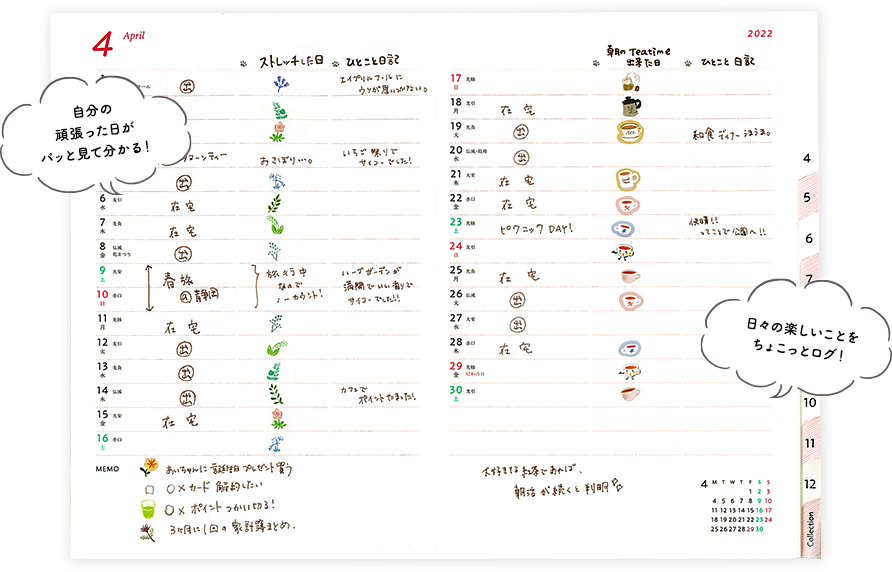 4 April
ストレッチした日 ひとこと日記
エイプリルフールに
ウソが思いつかない。
出
自分の
頑張った日が
パッと見て分かる!
おさぼり…。
いちご祭りで
サイコーでした!
出
6 水 友引 在宅
7 木 先負 在宅
8 金 仏滅 花まつり 出
9 土 大安 春旅 @静岡
旅行中
なので
ノーカウント!
ハーブガーデンが
満開でいい香りで
サイコーでした!!
10 日 赤口
11 月 先勝 在宅
12 火 友引 出
13 水 先負 出
14 木 仏滅 出
カフェで
ポイントたまった!
15 金 大安 在宅
16 土 赤口
MEMO
あいちゃんに誕生日プレゼント買う
〇×カード解約したい
〇×ポイントつかい切る!
3ヶ月に1回の家計簿まとめ.
2022
朝のTeatime
出来た日
ひとこと日記
17 日 先勝
18 月 友引 在宅
19 火 先負 出 和食ディナーうまうま。
20 水 仏滅・穀雨 出
21 木 大安 在宅
22 金 赤口 在宅
23 土 先勝 ピクニックDAY!
快晴!!
ってことで公園へ!!
24 日 友引
25 月 先負 在宅
26 火 仏滅 出
27 水 大安 出
28 木 赤口 在宅
29 金 先勝 昭和の日
30 土 友引
大好きな紅茶であれば、
朝活が続くと判明
日々の楽しいことを
ちょこっとログ!
4 M T W T F S S
1 2 3
4 5 6 7 8 9 10
11 12 13 14 15 16 17
18 19 20 21 22 23 24
25 26 27 28 29 30
4
5
6
7
10
11
12
Collection